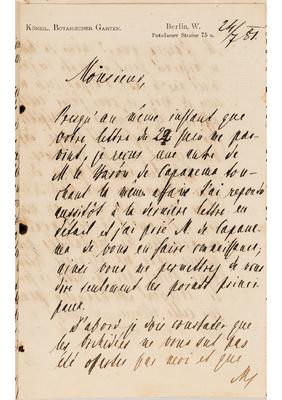 KÖNIGL. BOTANISCHER GARTEN.
Berlin, W.
Potsdamer Strasse 75 a.
24/7 81
Monsieur,
Presqu'au même instant que
votre lettre de 24 juin me par-
vint, je reçus une autre de
M. le Baron de Capanema tou-
chant la même affaire. J'ai repondu
aussitôt à la dernière lettre en
détail et j'ai prié M. de Capane-
ma de vous en faire connaissance;
ainsi vous me permettrez de vous
dire seulement les points princi-
paux.
D'abord je dois constater que
les Orchidées ne vous ont pas
été offertes par moi et que